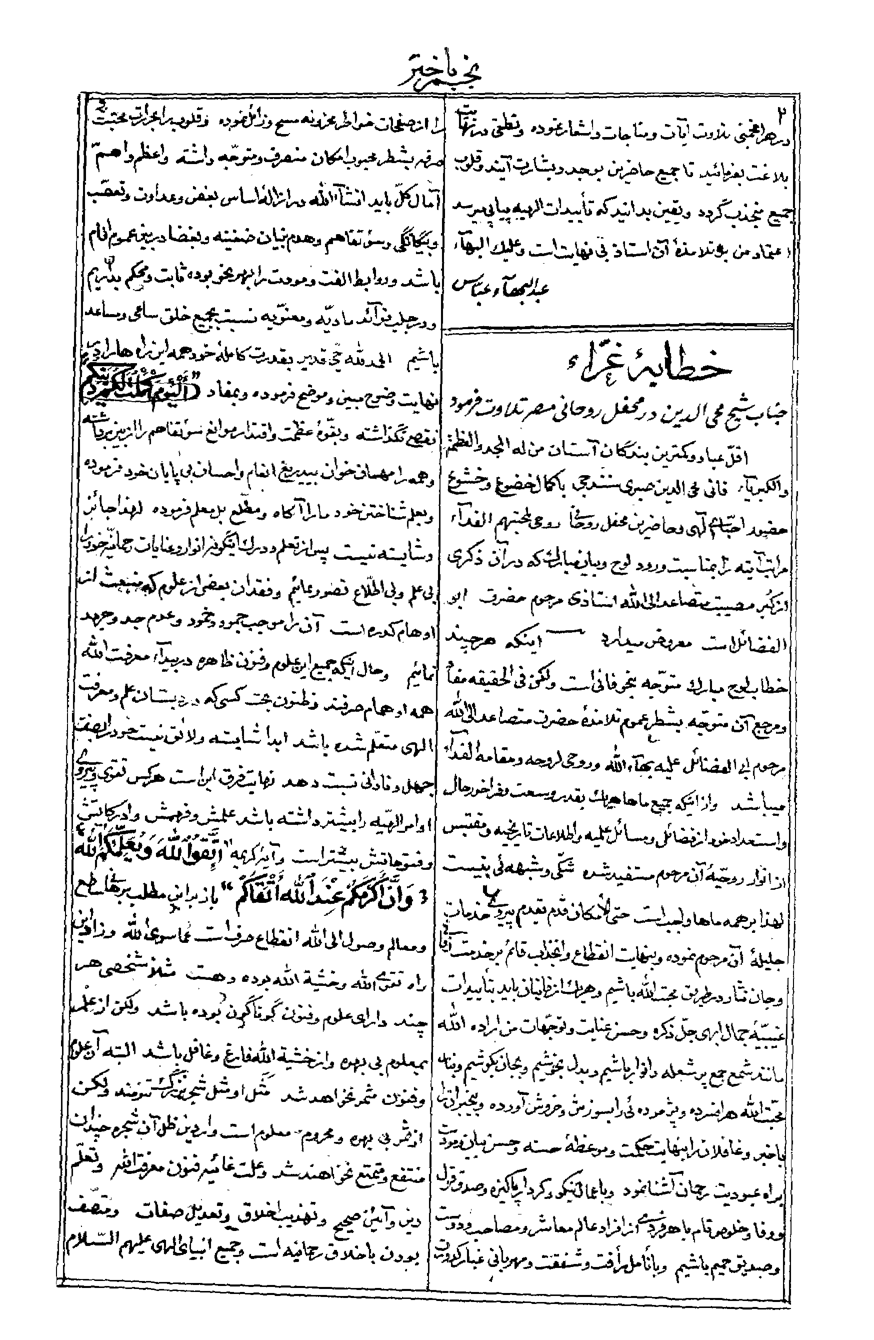 نجم باختر
۲
در هر انجمنی تلاوت آیات و مناجات و اشعار نموده و نطقی در نهایت
بلاغت بفرمائید تا جمیع حاضرین بوجد و بشارت آیند و قلوب
جمیع منجذب گردد و یقین بدانید که تأییدات الهیه پیاپی میرسد
اعتماد من بر تلامذهٔ آن استاذ بی نهایت است و علیک البهآء
عبدالبهآء عباس
خطابهٔ غرّاء
جناب شیخ محی الدین در محفل روحانی مصر تلاوت فرمود
اقلّ عباد و کمترین بندگان آستان من له المجد و العظمة
والکبریآء فانی محی الدین صبری سنندجی باکمال خضوع و خشوع
حضور احبّای الهی و حاضرین محفل روحانی روحی لمحبتهم الفدآء
مراتب آتیه را بمناسبت ورود لوح و بیان مبارک که در آن ذکری
از کُبر مصیبت متصاعد الی الله استاذی مرحوم حضرت ابو
الفضائل است معروض میدارد اینکه هر چند
خطاب لوح مبارک متوجّه بنحو فانی است ولکن فی الحقیقه مفاد
و مرجع آن متوجّه بشطر عموم تلامذهٔ حضرت متصاعد الی الله
مرحوم ابی الفضائل علیه بهآء الله و روحی لروحه و مقامه الفدآء
میباشد واز اینکه جمیع ماها هر یک بقدر وسعت و فراخور حال
و استعداد خود از فضائل و مسائل علمیه و اطلاعات تاریخیه و مقتبس
از انوار روحیهٔ آن مرحوم مستفید شده شکّی و شبهه ئی نیست
لهذا بر همه ماها واجب است حتی الأمکان قدم بقدم پیروی خدمات
جلیلهٔ آن مرحوم نموده و بنهایت انقطاع و انجذاب قائم بر خدمت
و جان نثار در طریق محبّت الله باشیم و هر یک از ماها باید بتأییدات
غیبیهٔ جمال ابهی جلّ ذکره و حسن عنایت و توجّهات من اراده الله
مانند شمع جمع پر شعله و انوار باشیم و بدل بخوشیم و بجان بکوشیم و بنار
محبّت الله هر افسرده و پژموده ئی را بسوزش و خروش آورده و بیخبران را
باخبر و غافلان را بنهایت حکمت و موعظهٔ حسنه و حسن بیان و مودّت
براه عبودیت رحمان آشنا نمود و باعمال نیکو و کردار پاکیزه و صدق قول
و وفا و خلوص تام با هر فردی از افراد عالم معاشر و مصاحب و دوست
و صدیق حمیم باشیم و بأنامل رأفت و شفقت و مهربانی غبار کدورت
را از صفحات خواطر محزونه مسح و زائل نموده و قلوب را بحرارت محبّت
صرفه بشطر محبوب امکان منصرف و متوجّه داشته و اعظم و اهمّ
آمال کلّ باید انشآء الله در ازاله اساس بغض و عداوت و تعصّب
و بیگانگی و سوء تفاهم و هدم بنیان ضغینه و بغضا در بین عموم انام
باشد و روابط الفت و مودت را بهر نحو بوده ثابت و محکم بداریم
و در جلب فوآئد مادیّه و معنویه نسبت بجمیع خلق ساعی و مساعد
باشیم الحمد لله حیّ قدیر بقدرت کاملهٔ خود همه این راه ها را در
نهایت وضوح مبین و موضح فرموده و بمفاد (الْیَوْمَ أکْمَلْتُ لَکُمْ دِینَکُمْ)
نقصی نگذاشته و بقوّهٔ عظمت و اقتدار موانع سوء تفاهم را از بین برداشته
و همه را مهمان خوان بیدریغ انعام و احسان بی پایان خود فرموده
و بعلم شناختن خود ما را آگاه و مطّلع بل معلم فرموده لهذا جائز
و شایسته نیست پس از تعلم و درک اینگونه انوار و عنایات رحمانیه خود را
بی علم و بی اطّلاع تصور نمائیم و فقدان بعضی از علوم که منبعث از
اوهام کدره است آن را موجب جمود و خمود و عدم جدّ و جهد
نمائیم و حال اینکه جمیع این علوم و فنون ظاهره در بیدآء معرفت الله
همه اوهام صرفند و ظنون بحت کسی که در دبستان علم و معرفت
الهی متعلم شده باشد ابدا شایسته و لائق نیست خود را بصفت
جهل و نادانی نسبت دهد نهایت فرق این است هر کس تقوی و پیروی
اوامر الهیّه را بیشتر داشته باشد علمش و فهمش و ادراکاتش
و فتوحاتش بیشتر است و آیهٔ کریمه "اتَّقُوا اللهَ وَ یُعَلِّمُکُمُ اللهُ
وَ إنَّ أکْرَمَکُمْ عِنْدَ اللهِ أتْقَاکُمْ" باز بر این مطلب برهان ساطع
و معالم وصول الی الله انقطاع صرف است عما سوی الله و زاد این
راه تقوی الله و خشیة الله بوده و هست مثلا شخصی هر
چند دارای علوم و فنون گوناگون بوده باشد ولکن از علم
بمعلوم بی بهره و از خشیة الله فارغ و غافل باشد البته آن علوم
و فنون مثمر نخواهد شد مَثَل او مثل شجر بزرگ تنومند ولکن
از ثمر بی بهره و محروم معلوم است واردین ظل آن شجره چندان
منتفع و متمتع نخواهند شد و علت غائیه فنون معرفت الله و تعلّم
دین و آئین صحیح و تهذیب اخلاق و تعدیل صفات و متّصف
بودن باخلاق رحمانیه است و جمیع انبیای الهی علیهم السّلام